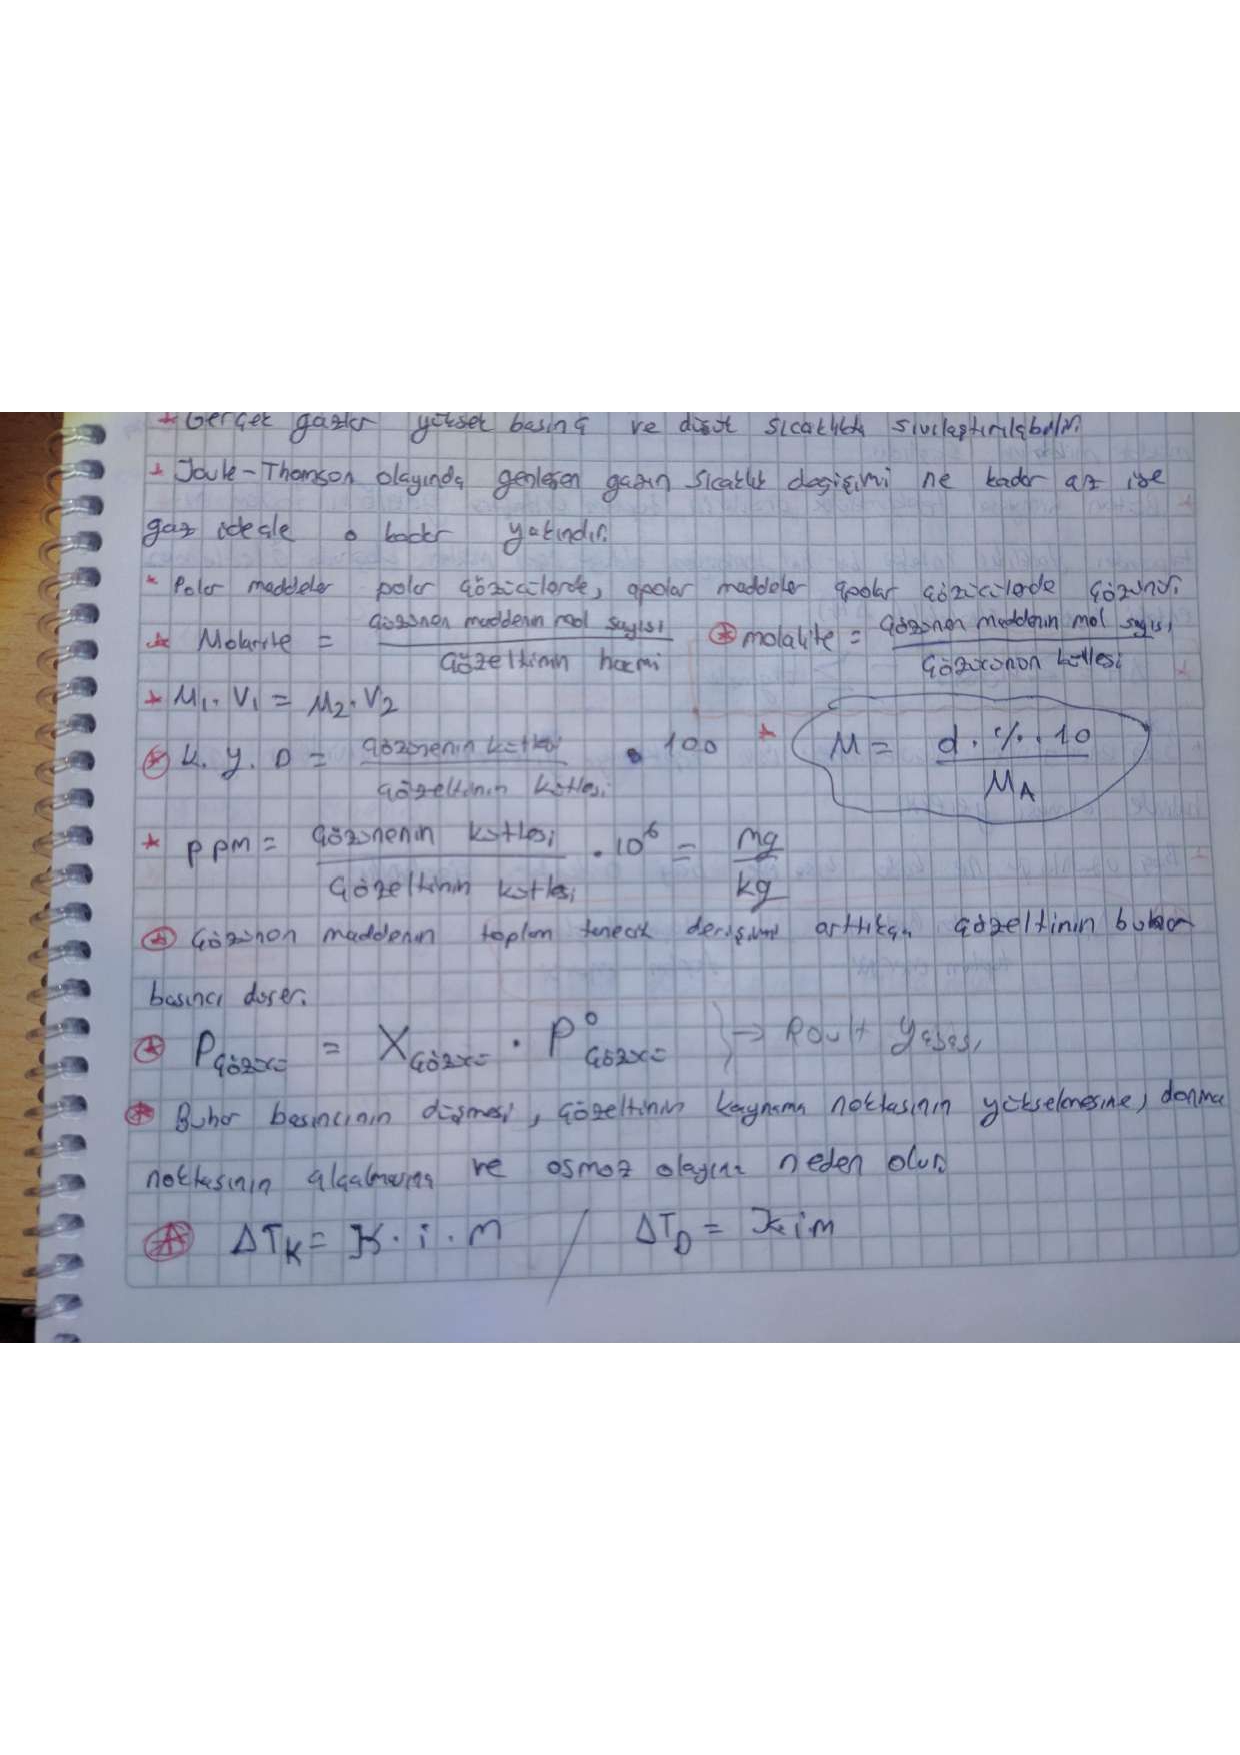 * Gerçek gazlar yüksek basınç ve düşük sıcaklıkta sıvılaştırılabilir.
* Joule-Thomson olayında genleşen gazın sıcaklık değişimi ne kadar az ise
gaz ideale o kadar yakındır.
* Polar maddeler polar çözücülerde, apolar maddeler apolar çözücülerde çözünür.
* Molarite = çözünen maddenin mol sayısı / çözeltinin hacmi * molalite = çözünen maddenin mol sayısı / çözücünün kütlesi
* M₁.V₁ = M₂.V₂
* K.y.D = çözünenin kütlesi / çözeltinin kütlesi . 100 * M = d.%.10 / MA
* ppm = çözünenin kütlesi / çözeltinin kütlesi . 10⁶ = mg / kg
* Çözünen maddenin toplam tanecik derişimi arttıkça çözeltinin buhar
basıncı düşer.
* Pçözücü = Xçözücü . P⁰çözücü } → Roult Yasası
* Buhar basıncının düşmesi, çözeltinin kaynama noktasının yükselmesine, donma
noktasının alçalmasına ve osmoz olayına neden olur.
* ΔTK = K.i.m / ΔTD = K i m